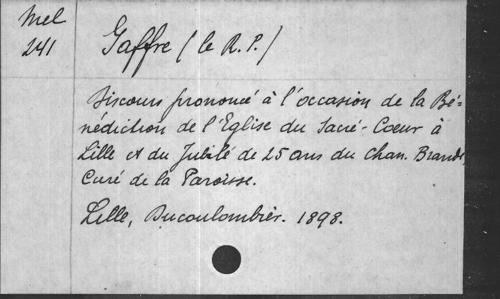 Mel
241
Gaffre (le R. P.)
Discours prononcé à l'occasion de la Bé-
nédiction de l'Eglise du Sacré-Coeur à
Lille et du Jubilé de 25 ans du Chan. Brande,
Curé de la Paroisse.
Lille, Ducoulombier. 1898.